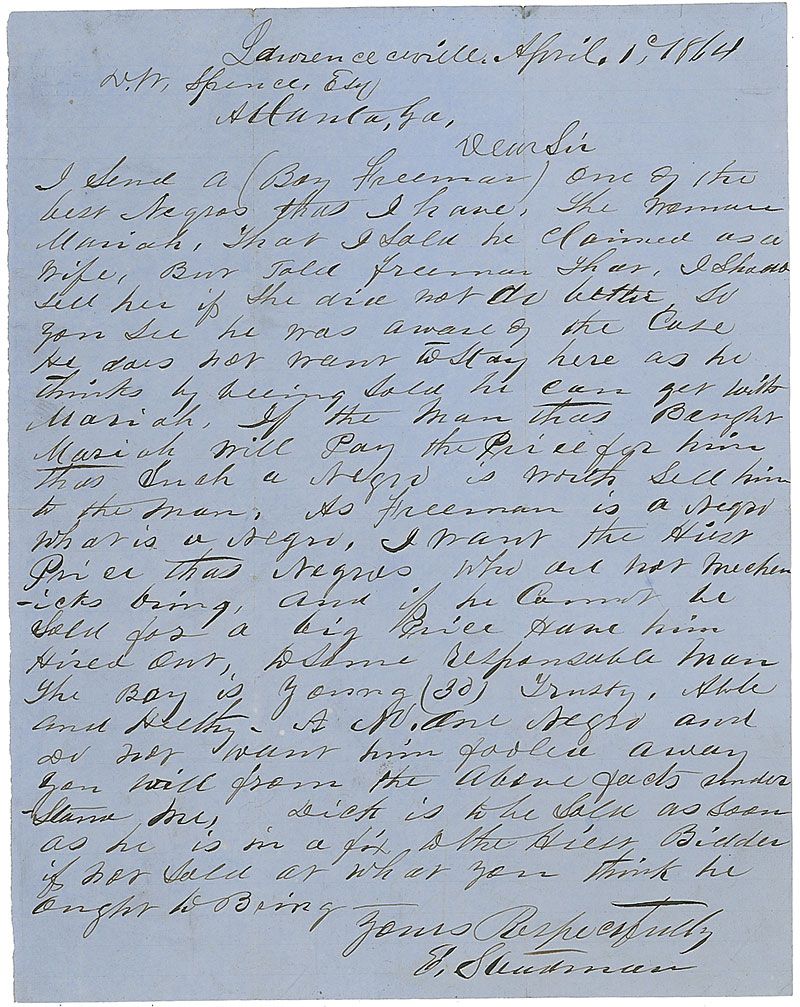 Lawrenceville, April, 1c, 1864
D. W. Spence, Esq
Atlanta, Ga,
Dear Sir
I Send a (Boy Freeman) One of the
best Negros that I have, The Woman
Mariah, That I Sold he Claimed as a
Wife, But Told Freeman That, I Should
Sell her if She did not do better, So
You See he was aware of the Case
He does not want to Stay here as he
thinks by being Sold he can get with
Mariah, If the Man that Baught
Mariah will Pay the Price for him
that Such a Negro is worth Sell him
to the Man, As Freeman is a Negro
what is a Negro, I want the Hiest
Price that Negros who are not mechen
-icks bring, and if he Cannot be
Sold for a big Price Have him
Hired Out, to Some Responsable Man
The Boy is Young (30) Trusty, Able
and Helthy - A No. One Negro and
do not want him fooled away
You will from the Above facts under
-Stand Me, Dick is to be Sold as Soon
as he is in a fix, to the Hiest Bidder
if not Sold at what You think he
ought to Bring
Yours Respectfully
E. Steadman